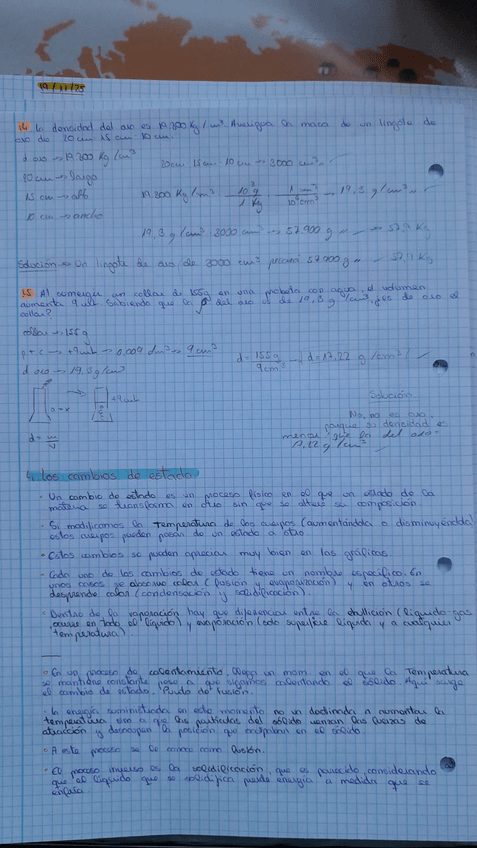 19/11/25
14. La densidad del oro es 19.300 Kg/m³. Averigua la masa de un lingote de
oro de 20cm 15 cm 10 cm.
d oro → 19.300 Kg/m³
20cm 15cm 10cm → 3000 cm³
20cm → largo
15 cm → alto
19.300 Kg/m³ 10³g / 1 Kg 1 m³ / 10⁶cm³ → 19,3 g/cm³
10 cm → ancho
19,3 g/cm³ 3000 cm³ → 57.900 g → 57,9 Kg
Solución → Un lingote de oro de 3000 cm³ pesará 57.900 g 57,9 Kg
15. Al sumergir un collar de 155g en una probeta con agua, el volumen
aumenta 9 mL. Sabiendo que la ρ del oro es de 19,3 g/cm³, ¿es de oro el
collar?
collar → 155 g
p + c → +9mL → 0,009 dm³ → 9cm³
d = 155g / 9cm³ → d = 17,22 g/cm³
d oro → 19,3g/cm³
+9mL
d = m/v
Solución
No, no es oro
porque su densidad es
menor que la del oro
17,22 g/cm³
4. Los cambios de estado
· Un cambio de estado es un proceso físico en el que un estado de la
materia se transforma en otro sin que se altere su composición
· Si modificamos la Temperatura de los cuerpos (aumentándola o disminuyéndola)
estos cuerpos pueden pasar de un estado a otro
· Estos cambios se pueden apreciar muy bien en las gráficas
· Cada uno de los cambios de estado tiene un nombre específico. En
unos casos se absorbe calor (fusión y evaporación) y en otros se
desprende calor (condensación y solidificación).
· Dentro de la vaporización hay que diferenciar entre la ebullición (líquido-gas
ocurre en todo el líquido) y evaporación (solo superficie líquida y a cualquier
temperatura).
· En un proceso de calentamiento, llega un mom. en el que la Temperatura
se mantiene constante pese a que sigamos calentando el sólido. Aquí surge
el cambio de estado. Punto de fusión.
· La energía suministrada en este momento no va destinada a aumentar la
temperatura sino a que las partículas del sólido venzan las fuerzas de
atracción y desocupen la posición que ocupaban en el sólido.
· A este proceso se le conoce como fusión.
· El proceso inverso es la solidificación, que es parecido, considerando
que el líquido que se solidifica pierde energía a medida que se
enfría